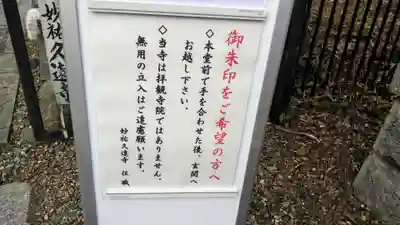 御朱印をご希望の方へ
◇本堂前で手を合わせた後、玄関へ
お越し下さい。
◇当寺は拝観寺院ではありません。
無用の立入はご遠慮願います。
妙祐久遠寺 住職
妙祐久遠寺